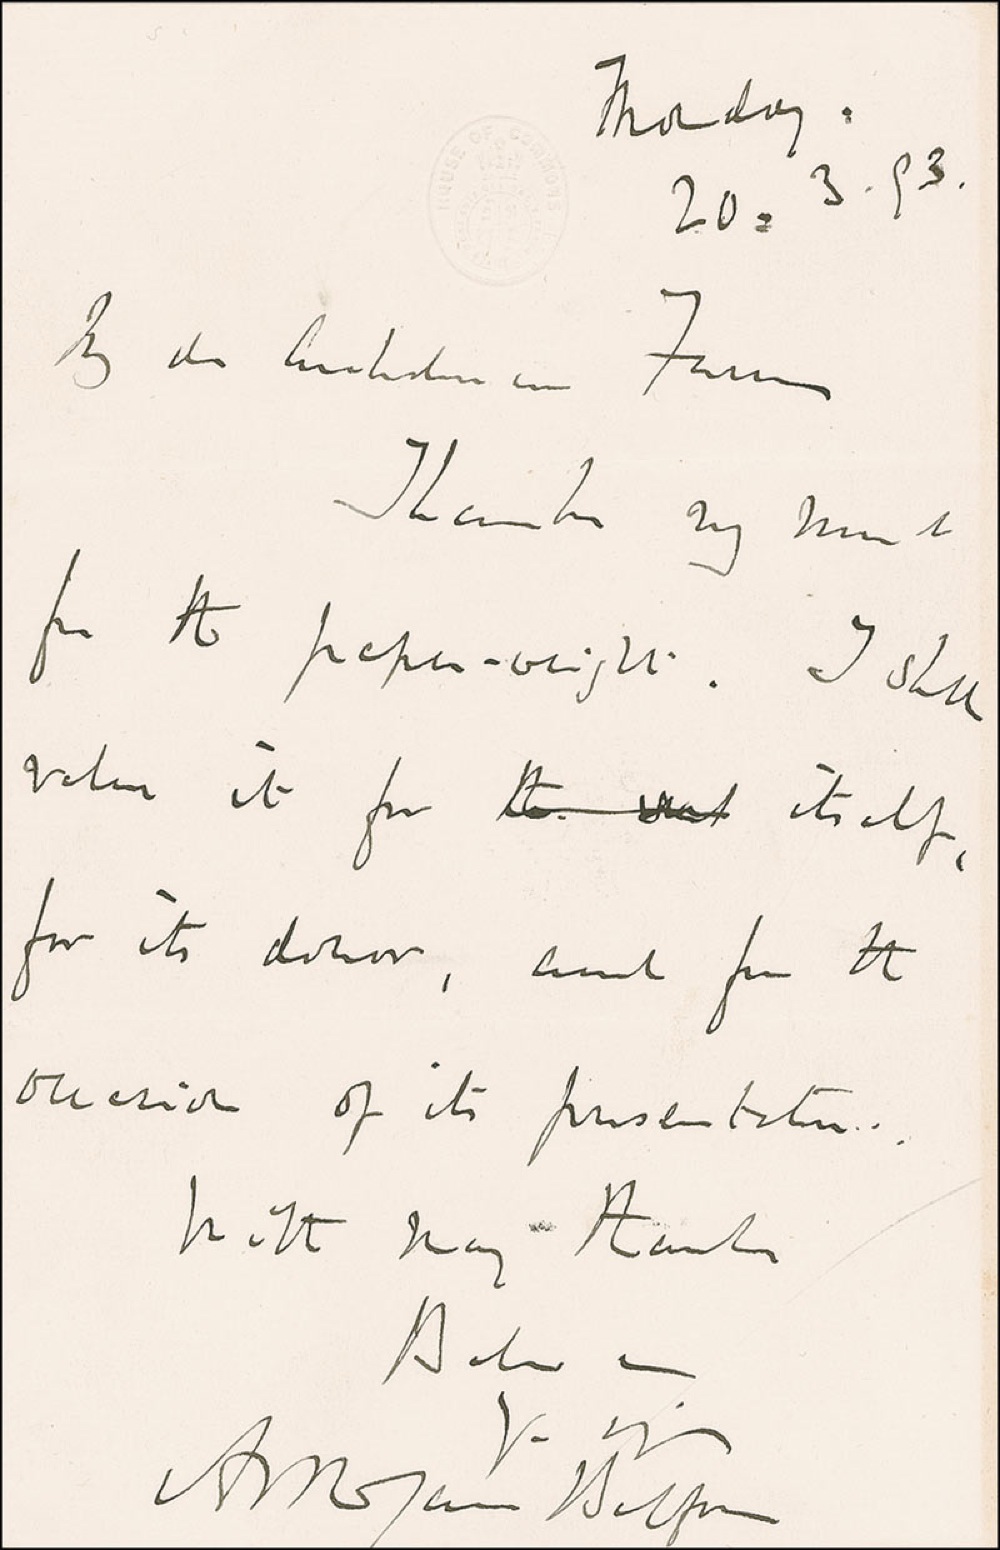 HOUSE OF COMMONS
Monday.
20. 3. 93.
My dr Archdeacon Farrar
Thanks very much
for the paper-weight. I shall
value it for the itself,
for its donor, and for the
occasion of its presentation.
With many thanks
Believe me
Arthur James Balfour